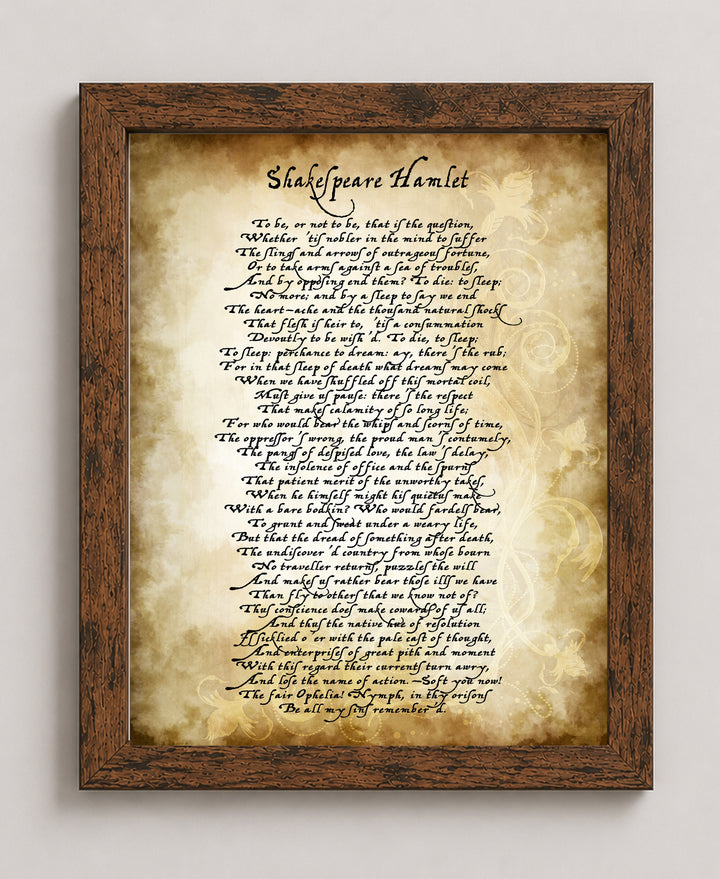 Shakespeare Hamlet
To be, or not to be, that is the question,
Whether 'tis nobler in the mind to suffer
The slings and arrows of outrageous fortune,
Or to take arms against a sea of troubles,
And by opposing end them? To die: to sleep;
No more; and by a sleep to say we end
The heart-ache and the thousand natural shocks
That flesh is heir to, 'tis a consummation
Devoutly to be wish'd. To die, to sleep;
To sleep: perchance to dream: ay, there's the rub;
For in that sleep of death what dreams may come
When we have shuffled off this mortal coil,
Must give us pause: there's the respect
That makes calamity of so long life;
For who would bear the whips and scorns of time,
The oppressor's wrong, the proud man's contumely,
The pangs of despised love, the law's delay,
The insolence of office and the spurns
That patient merit of the unworthy takes,
When he himself might his quietus make
With a bare bodkin? Who would fardels bear,
To grunt and sweat under a weary life,
But that the dread of something after death,
The undiscover'd country from whose bourn
No traveller returns, puzzles the will
And makes us rather bear those ills we have
Than fly to others that we know not of?
Thus conscience does make cowards of us all;
And thus the native hue of resolution
Is sicklied o'er with the pale cast of thought,
And enterprises of great pith and moment
With this regard their currents turn awry,
And lose the name of action.-Soft you now!
The fair Ophelia! Nymph, in thy orisons
Be all my sins remember'd.